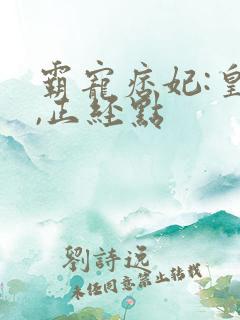 霸寵痞妃:皇
,正經點
劉詩远
未经同意禁止转载